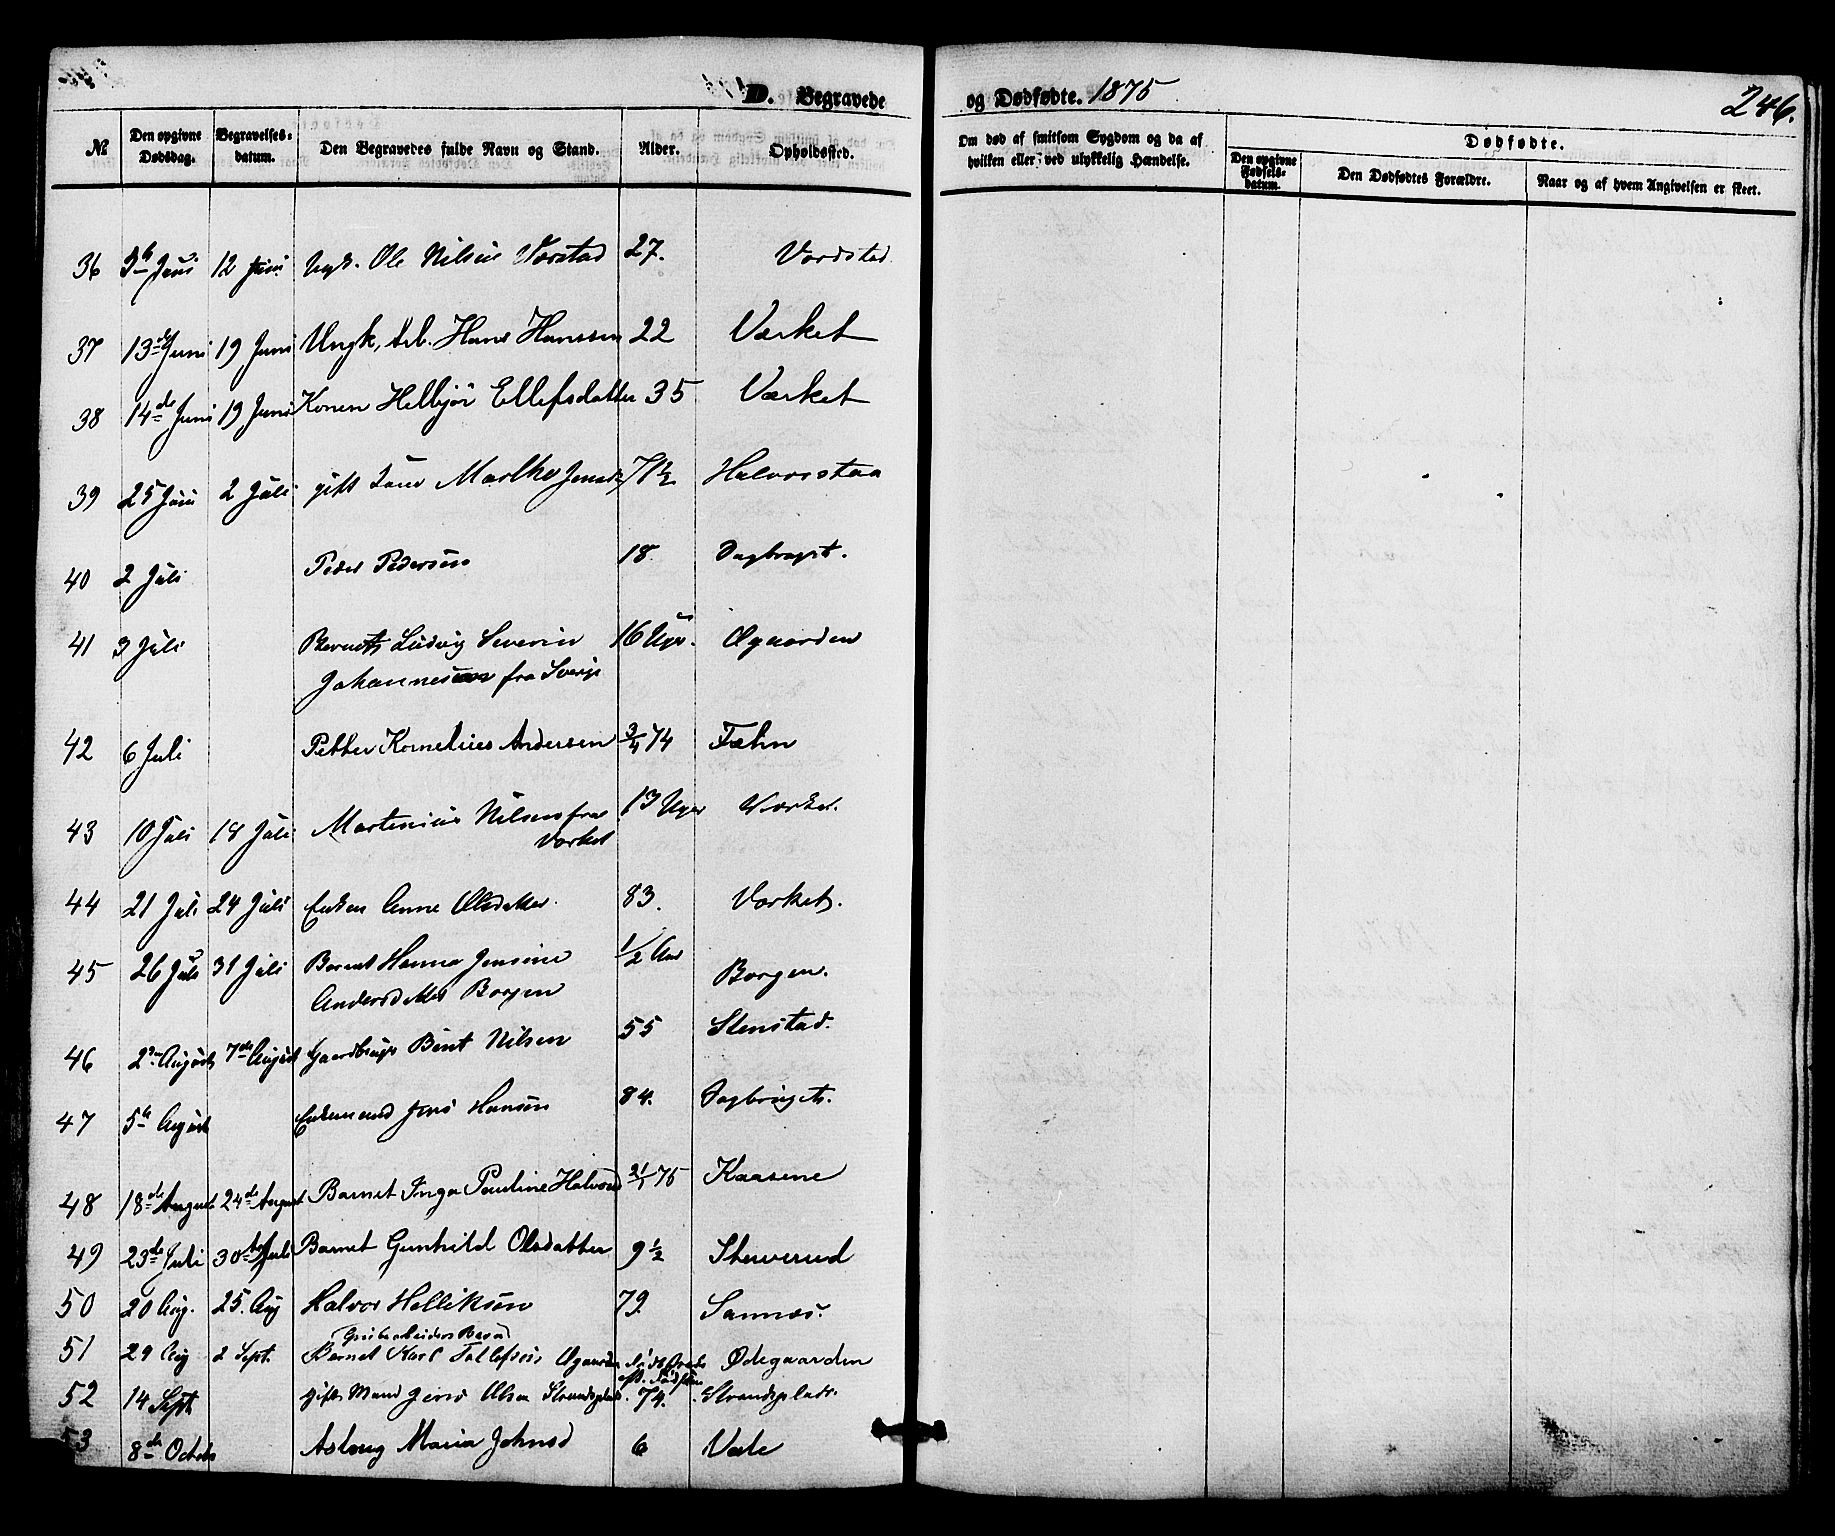 D. Begravede og Dødfødte. 1875 246.
№ Den opgivne Dødsdag. Begravelses-datum. Den Begravedes fulde Navn og Stand. Alder. Opholdssted. Om død af smitsom Sygdom og da af hvilken eller ved ulykkelig Hændelse. Dødfødte.
Den opgivne Fødsels-datum. Den Dødfødtes Forældre. Naar og af hvem Angivelsen er skeet.
36 Juni 12 Juni Ungk. Ole Nilsen Vorstad 27. Vordstad
37 13de Juni 19 Juni Ungk, Arb. Hans Hanssen 22 Værket
38 14de Juni 19 Juni Konen Helbjør Ellefsdatter 35 Værket
39 25 Juni 2 Juli gift Marthe Jensd 71½ Halvorstaa
40 2 Juli Peder Pedersen 18 Dagbrøgt.
41 3 Juli Ludvig Severin 16 Uger. Øgaarden
Johannesen fra Sverige
42 6 Juli Petter Kornelius Andersen 3/4 74 Fæhn
43 10 Juli 14 Juli Martinius Nilsen fra 13 Uger Værket.
Værket
44 21 Juli 24 Juli Enken Anne Olsdatter 83. Værket.
45 26 Juli 31 Juli Barnet Hanna Jensine 1/2 Aar Borgen.
Andersdatter Borgen
46 2 August 7de August Gaardbruger Bent Nilsen 55 Stenstad.
47 5te August Enkemand Jens Hansen 84.
48 18de August 24de August Barnet Inga Pauline Halvorsd 21/1 75 Kaasene
49 23de Juli 30te Juli Barnet Gunhild Olsdatter 9½ Stenverud
50 20 Aug. 25. Aug Halvor Helliksen 79 Sannæs.
Grubearbeiders Barn
51 29 Aug 2 Sept. Barnet Karl Tollefsen Øgaarden Ødegaarden
52 14 Sept. gift Mand Jens Olsen 74. Strandsplads.
53 8de Octob Aslaug Maria Johnsd 6 Vale